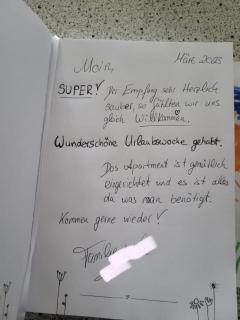 Moin, März 2023
SUPER! Ihr Empfang sehr Herzlich
sauber, so fühlten wir uns
gleich Willkommen.
Wunderschöne Urlaubswoche gehabt.
Das Apartment ist gemütlich
eingerichtet und es ist alles
da was man benötigt.
Kommen gerne wieder!
Familie